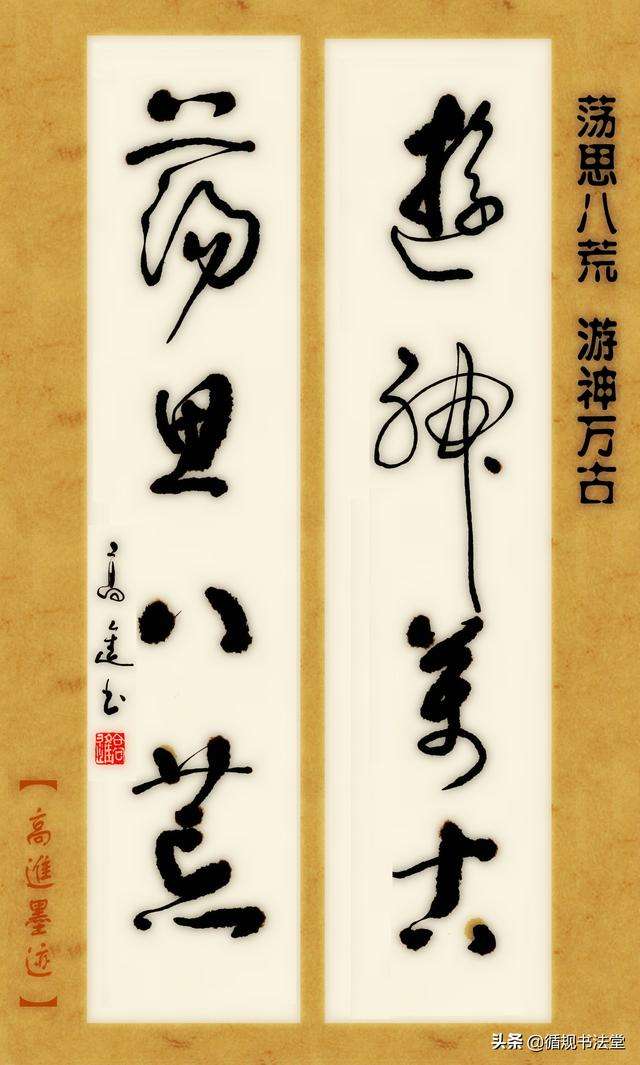 荡思八荒 游神万古
遊神萬古
蕩思八荒
高進书
【高進墨迹】
头条 @循规书法堂